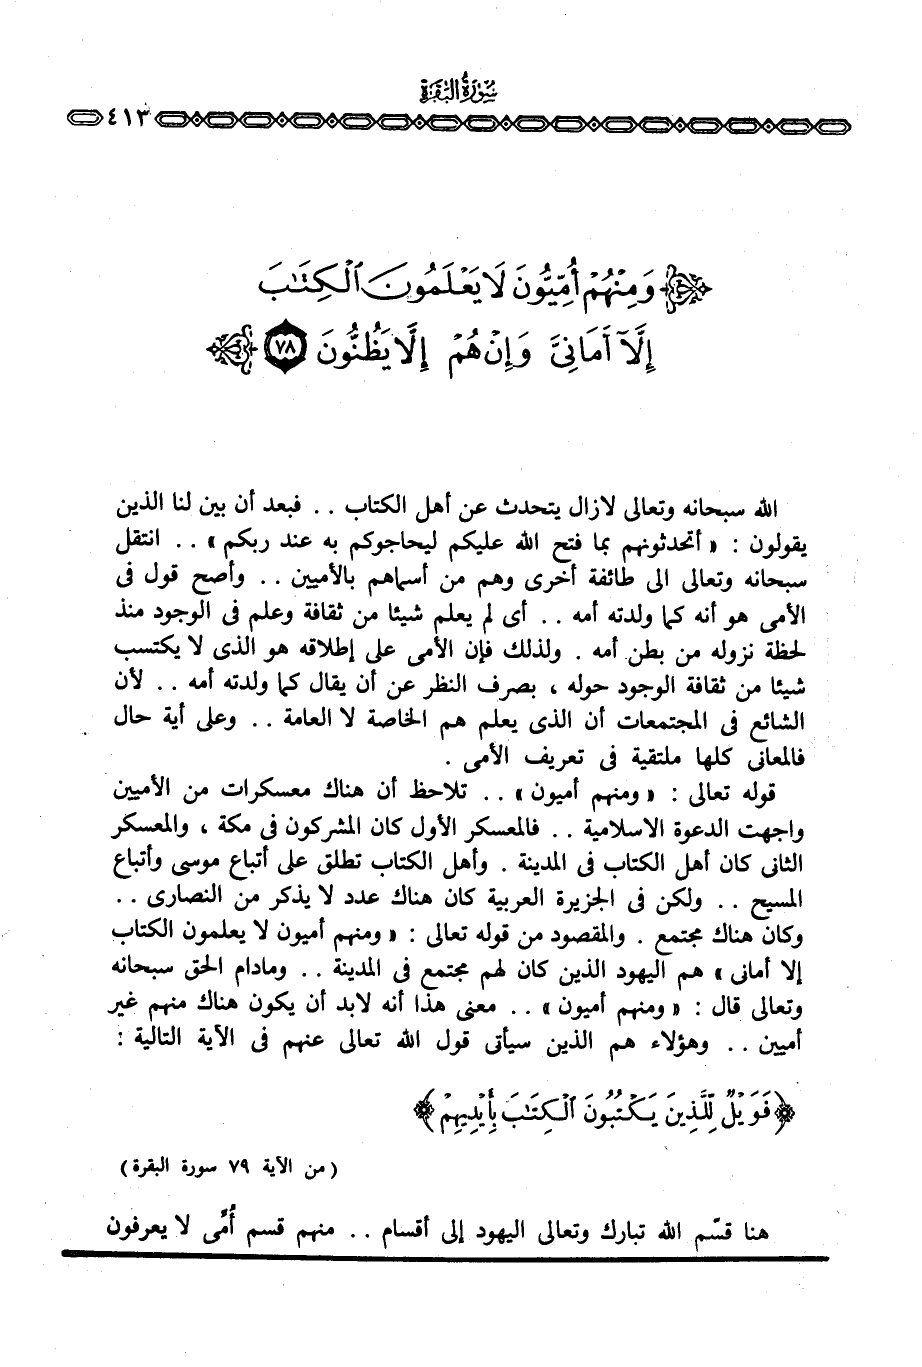 سُورَةُ البَقَرَة
٤١٣
وَمِنْهُمْ أُمِّيُّونَ لَا يَعْلَمُونَ ٱلْكِتَٰبَ
إِلَّآ أَمَانِىَّ وَإِنْ هُمْ إِلَّا يَظُنُّونَ ٧٨
الله سبحانه وتعالى لازال يتحدث عن أهل الكتاب . . فبعد أن بين لنا الذين
يقولون : « أتحدثونهم بما فتح الله عليكم ليحاجوكم به عند ربكم » . . انتقل
سبحانه وتعالى الى طائفة أخرى وهم من أسماهم بالأميين . . وأصح قول فى
الأمى هو أنه كما ولدته أمه . . أى لم يعلم شيئا من ثقافة وعلم فى الوجود منذ
لحظة نزوله من بطن أمه . ولذلك فإن الأمى على إطلاقه هو الذى لا يكتسب
شيئا من ثقافة الوجود حوله ، بصرف النظر عن أن يقال كما ولدته أمه . . لأن
الشائع فى المجتمعات أن الذى يعلم هم الخاصة لا العامة . . وعلى أية حال
فالمعانى كلها ملتقية فى تعريف الأمى .
قوله تعالى : « ومنهم أميون » . . تلاحظ أن هناك معسكرات من الأميين
واجهت الدعوة الاسلامية . . فالمعسكر الأول كان المشركون فى مكة ، والمعسكر
الثانى كان أهل الكتاب فى المدينة . وأهل الكتاب تطلق على أتباع موسى وأتباع
المسيح . . ولكن فى الجزيرة العربية كان هناك عدد لا يذكر من النصارى . .
وكان هناك مجتمع . والمقصود من قوله تعالى : « ومنهم أميون لا يعلمون الكتاب
إلا أمانى » هم اليهود الذين كان لهم مجتمع فى المدينة . . ومادام الحق سبحانه
وتعالى قال : « ومنهم أميون » . . معنى هذا أنه لابد أن يكون هناك منهم غير
أميين . . وهؤلاء هم الذين سيأتى قول الله تعالى عنهم فى الآية التالية :
﴿ فَوَيْلٌ لِّلَّذِينَ يَكْتُبُونَ ٱلْكِتَٰبَ بِأَيْدِيهِمْ ﴾
( من الآية ٧٩ سورة البقرة )
هنا قسّم الله تبارك وتعالى اليهود إلى أقسام . . منهم قسم أُمِّى لا يعرفون